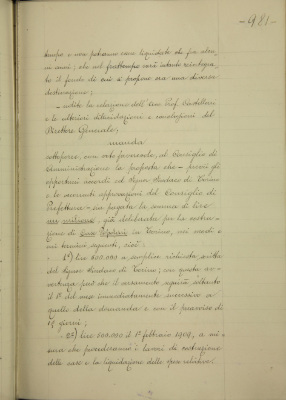 -981-
tempo e non potranno essere liquidate che fra alcu-
ni anni; che nel frattempo sarà intanto reintegra-
to il fondo di cui si propone ora una diversa
destinazione;
- udite la relazione dell'On. Prof.
e le ulteriori dilucidazioni e conclusioni del
Direttore Generale,
manda
sottoporre, con voto favorevole, al Consiglio di
Amministrazione la proposta che - previi gli
opportuni accordi col Signor Sindaco di Torino
e le occorrenti approvazioni del Consiglio di
Prefettura - sia pagata la somma di lire
un milione, già deliberata per la costru-
zione di Case Popolari in Torino, nei modi e
nei termini seguenti, cioè:
1°) lire 600.000 a semplice richiesta scritta
del Signor Sindaco di Torino; con questa av-
vertenza però che il versamento seguirà soltanto
il 1° del mese immediatamente successivo a
quello della domanda e con il preavviso di
15 giorni;
2°) lire 600.000 il 1° febbraio 1909, a mi-
sura che procederanno i lavori di costruzione
delle case e la liquidazione delle spese relative.